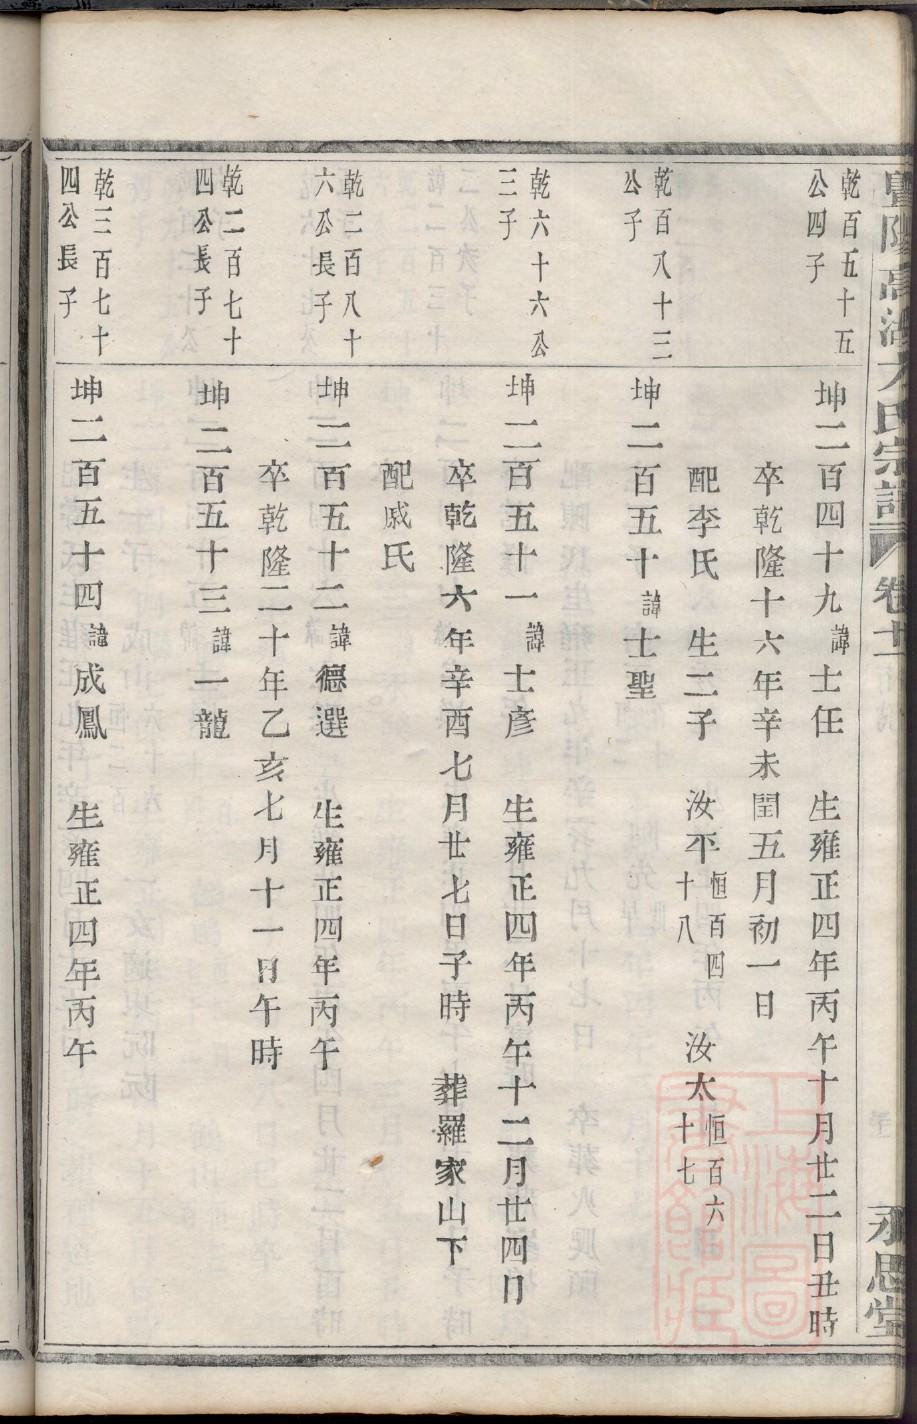 暨陽高湖
氏宗譜
卷十二
永思堂
乾百五十五
公四子
坤二百四十九諱士任 生雍正四年丙午十月廿二日丑時
卒乾隆十六年辛未閏五月初一日
配李氏 生二子 汝平恒百四十八 汝太恒百六十七
乾百八十三
公子
坤二百五十諱士聖
乾六十六公
三子
坤二百五十一諱士彥 生雍正四年丙午十二月廿四日
卒乾隆六年辛酉七月廿七日子時 葬羅家山下
配戚氏
乾二百八十
六公長子
坤二百五十二諱德選 生雍正四年丙午
卒乾隆二十年乙亥七月十一日午時
乾二百七十
四公長子
坤二百五十三諱一龍
乾三百七十
四公長子
坤二百五十四諱成鳳 生雍正四年丙午